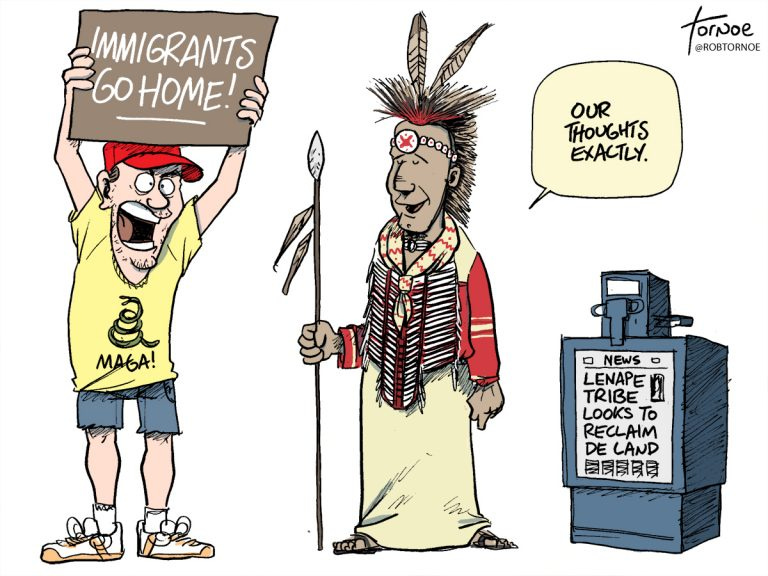 IMMIGRANTS
GO HOME!
MAGA!
OUR
THOUGHTS
EXACTLY.
TORNOE
@ROBTORNOE
NEWS
LENAPE
TRIBE
LOOKS TO
RECLAIM
DE LAND